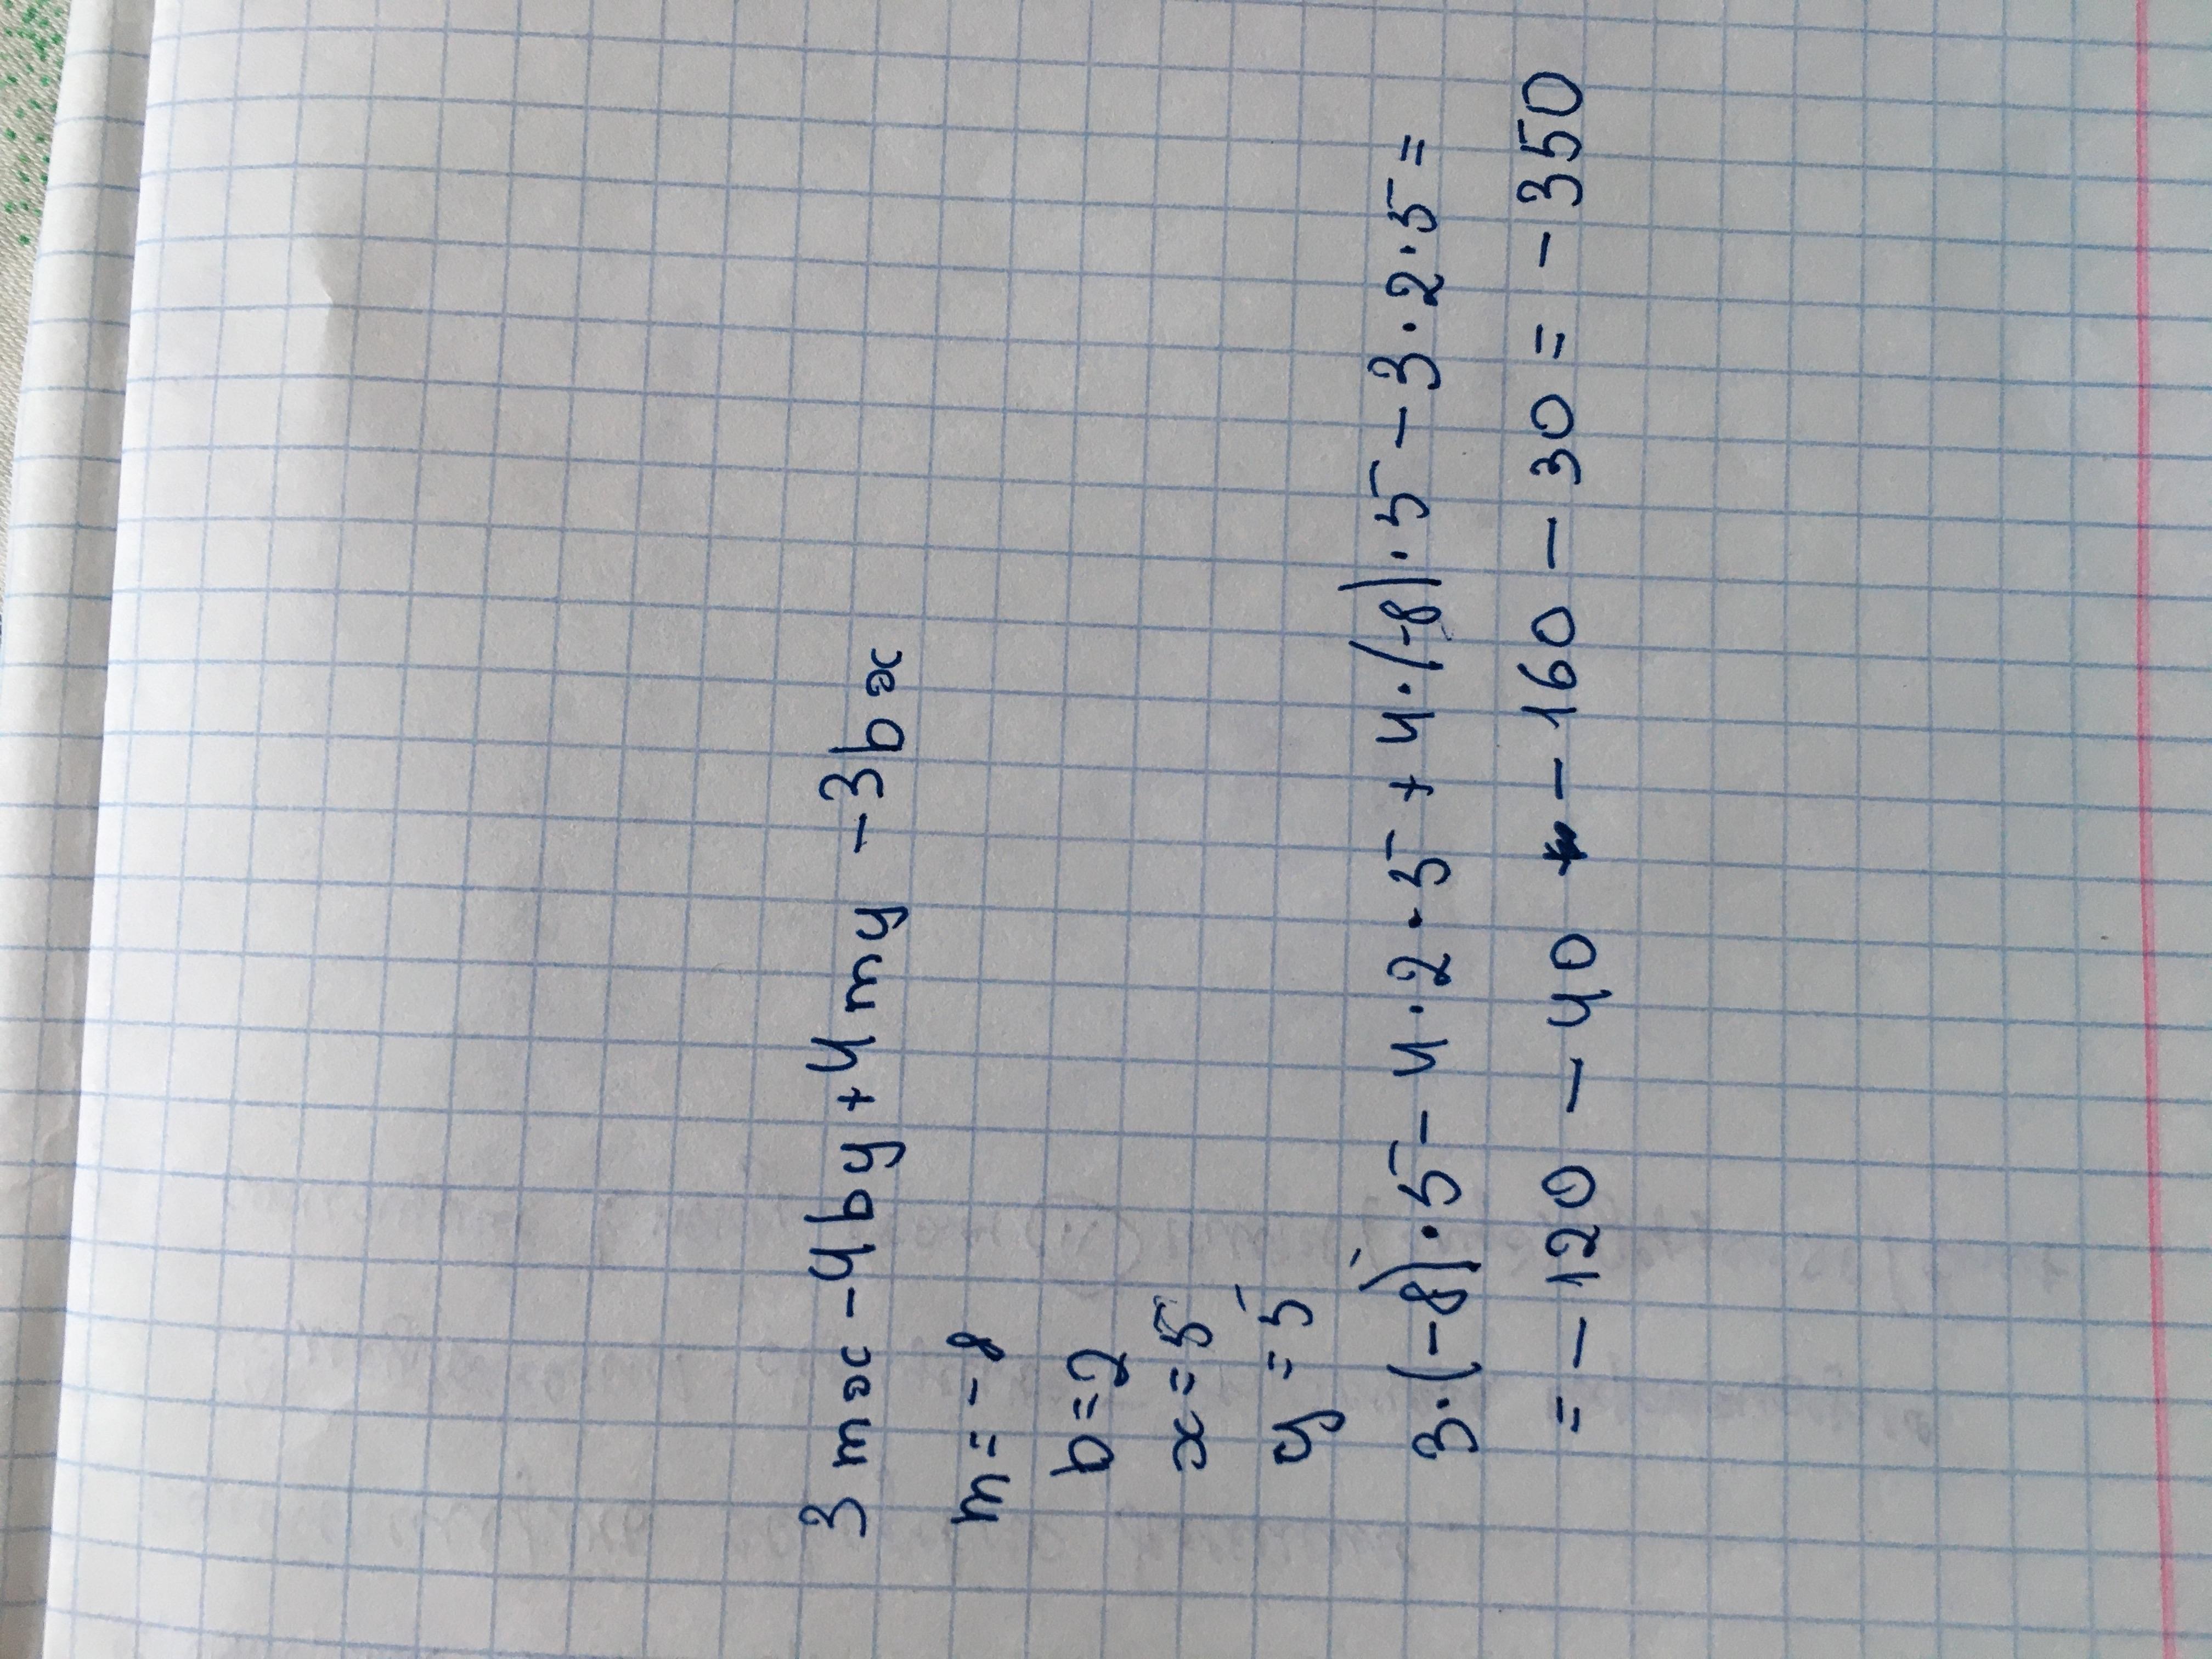 3mx-4by+4my-3bx
m=-8
b=2
x=5
y=5
3·(-8)·5-4·2·5+4·(-8)·5-3·2·5=
=-120-40-160-30=-350